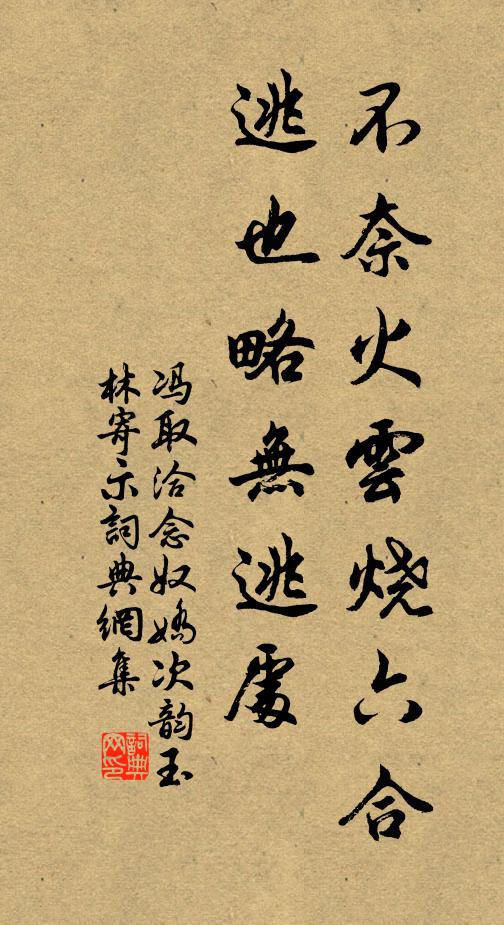 不奈火雲燒六合
逃也略無逃處
馮取洽念奴嬌次韵玉
林寄示詞典網集
詞典
网印